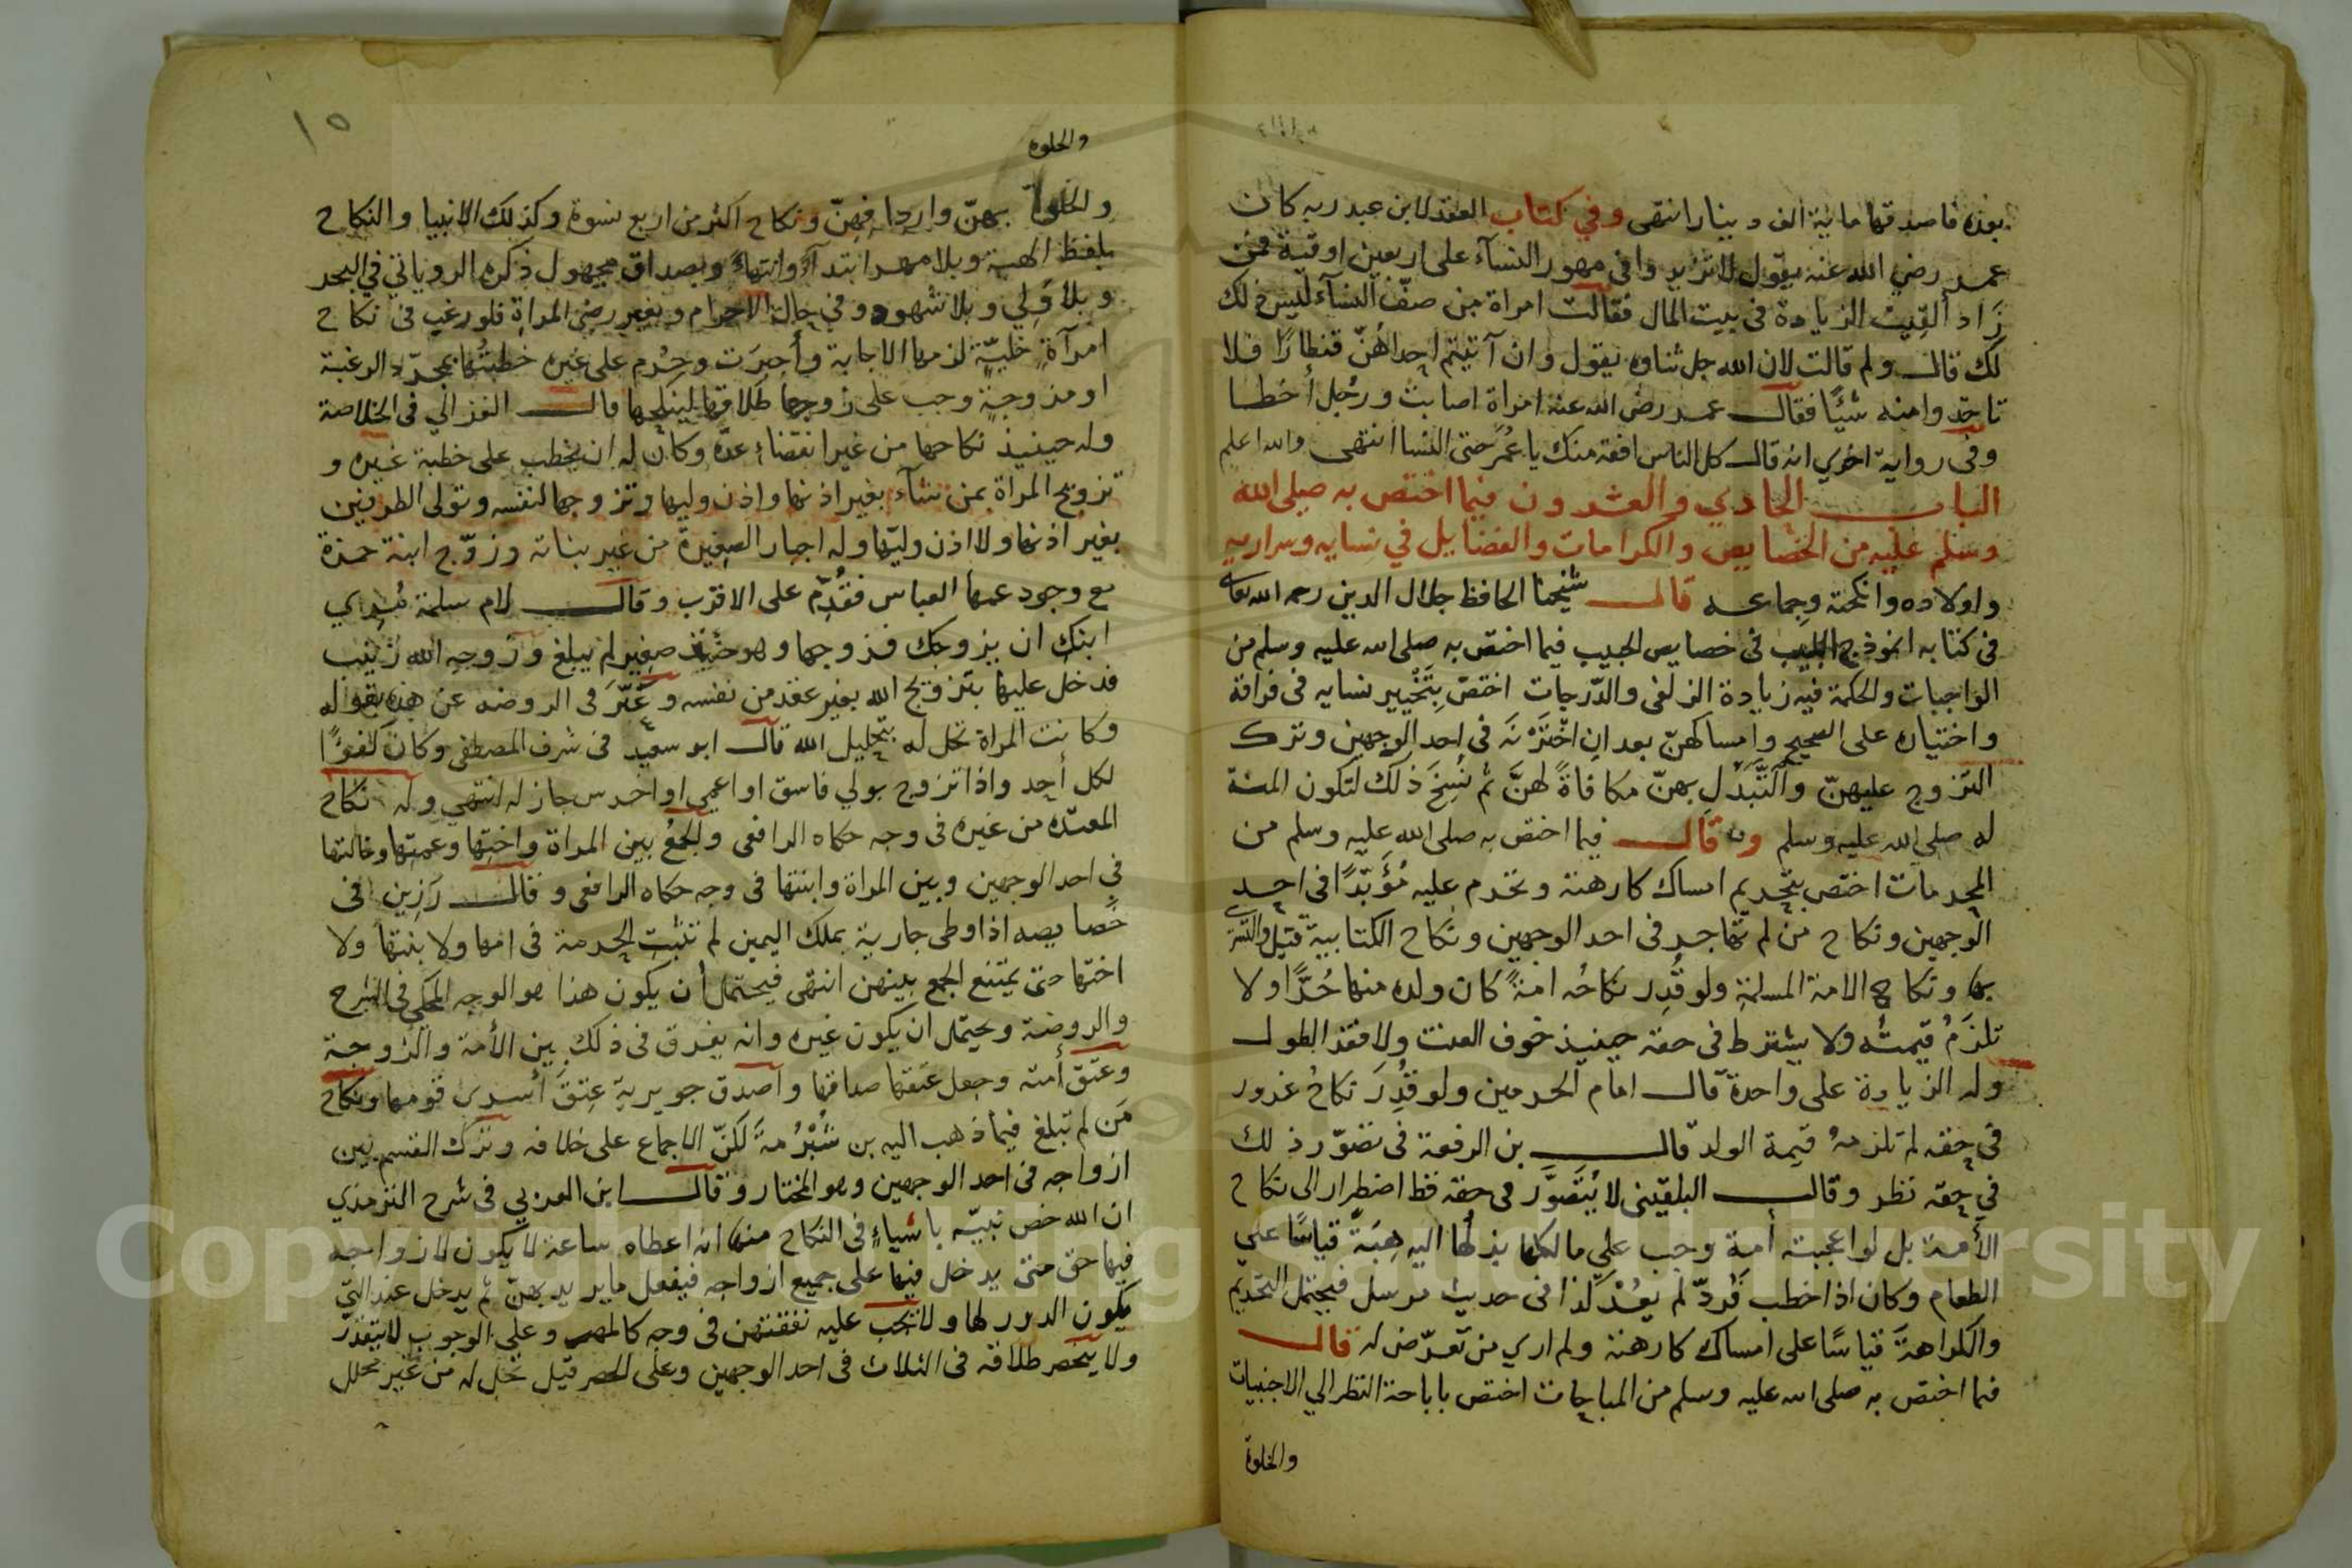 بعده فاصدقها ماية الف دينارا انتهى وفي كتاب العقد لابن عبد ربه كان
عمر رضي الله عنه يقول لا تزيدوا في مهور النسآء على اربعين اوقية فمن
زاد ألقيت الزيادة في بيت المال فقالت امراة من صفّ النسآء ليس ذلك
لك قال ولم قالت لان الله جل ثناوه يقول وان آتيتم احداهنّ قنطارًا فلا
تاخذوا منه شيًا فقال عمر رضي الله عنه امراة اصابت ورجل أخطا
وفي رواية اخري انه قال كل الناس افقه منك يا عُمَر حتى النسا انتهى والله اعلم
الباب الحادي والعشرون فيما اختص به صلى الله
وسلم عليه من الخصايص والكرامات والفضايل في نسايه وسراريه
واولاده وانكحته وجماعه قال شيخنا الحافظ جلال الدين رحمه الله تعالى
في كتابه انموذج اللبيب في خصايص الحبيب فيما اختص به صلى الله عليه وسلم من
الواجبات والحكمة فيه زيادة الزلفى والدّرجات اختصّ بِتَخْيير نسايه في فراقه
واختياره على الصحيح وامساكهنّ بعد انِ اخْتَرْنَه في احد الوجهين وترك
التزوج عليهنّ والتَّبَدُّل بهنّ مكافاةً لهنَّ ثم نُسِخَ ذلك لتكون المنة
له صلى الله عليه وسلم وقال فيما اختص به صلى الله عليه وسلم من
المحرمات اختص بتحريم امساك كارهته وتحرم عليه مُؤَبّدًا في احد
الوجهين ونكاح من لم تهاجر في احد الوجهين ونكاح الكتابية قيل والتسري
بها ونكاح الامة المسلمة ولو قُدِر نكاحُه امةً كان ولده منها حُرًّا ولا
تلزَمُ قيمتُه ولا يشترط في حقه حينيذ خوف العنت ولا فقد الطول
وله الزيادة على واحدة قال امام الحرمين ولو قُدِرَ نكاحُ غرور
في حقه لم تلزمهُ قيمة الولد قال بن الرفعة في تصوّر ذلك
في حقه نظر وقال البلقيني لا يُتَصَوَّر في حقه قط اضطرار الى نكاح
الأمة بل لو اعجبته أمة وجب علي مالكها بذلُها اليه هِبَةً قياسًا علي
الطعام وكان اذا خطب فَرُدّ لم يعُدْ كذا في حديث مرسل فيحتمل التحريم
والكراهةَ قياسًا على امساك كارهته ولم اري من تعرّض له قال
فيما اختص به صلى الله عليه وسلم من المباحات اختص باباحة النظر الي الاجنبيات
والخلوة
١٥
والخلوه
والخلوة بهنّ وارداِفهِنّ ونكاح اكثر من اربع نسوة وكذلك الانبيا والنكاح
بلفظ الهبة وبلا مهر ابتدآءً وانتهاءً وبصداق مجهول ذكره الروياني في البحر
وبلا وَلي وبلا شهود وفي حال الاحرام وبغير رضى المراة فلو رغب في نكاح
امرآةٍ خليّةٍ لزمها الاجابة وأجبرَت وحرُم على غيره خطبتُها بمجرّد الرغبة
او مزوجةٍ وجب على زوجها طلاقها لينكحها قال الغزالي في الخلاصة
وله حينيذ نكاحها من غير انقضاء عدّه وكان له ان يخطب على خطبة غيره و
تزويج المراة بمن شآء بغير اذنها واذن وليها وتزوجها لنفسه وتولى الطرفين
بغير اذنها ولا اذن وليّها وله اجبار الصغيرة من غير بناته وزوّج ابنة حمزة
مع وجود عمها العباس فقُدِّم على الاقرب وقال لام سلمة مُري
ابنك ان يزوجك فزوجها وهو حينيذ صغير لم يبلغ وزوجه الله زينب
فدخل عليها بتزويج الله بغير عقد من نفسه وعَبّرَ في الروضه عن هذه بقوله
وكانت المراة تحل له بتحليل الله قال ابو سعيد في شرف المصطفى وكان كفؤًا
لكل أحد واذا تزوج بولي فاسق او اعمي او اخرس جاز له انتهي وله نكاح
المعتده من غيره في وجه حكاه الرافعي والجمعُ بين المراة واختها وعمتها وخالتها
في احد الوجهين وبين المراة وابنتها في وجه حكاه الرافعي وقال رَزِين في
خصايصه اذا وطى جارية بملك اليمين لم تثبت الحرمة في امها ولا بنتها ولا
اختها حتى يمتنع الجمع بينهن انتهى فيحتمل أن يكون هذا هو الوجه المحكي في الشرح
والروضة ويحتمل ان يكون غيره وانه يفرق في ذلك بين الأمة والزوجة
وعتق أمته وجعل عتقها صداقها واصدق جويرية عِتقَ أسري قومها ونكاح
مَن لم تبلغ فيما ذهب اليه بن شُبْرُمةَ لكنّ الاجماع على خلافه وترك القسم بين
ازواجه في احد الوجهين وهو المختار وقال ابن العربي في شرح الترمذي
ان الله خص نبيّه باشياءٍ في النكاح منها انه اعطاه ساعة لا يكون لازواجه
فيها حق متى يدخل فيها على جميع ازواجه فيفعل ما يريد بهنّ ثم يدخل عند التي
يكون الدور لها ولا تجب عليه نفقتهن في وجه كالمهر وعلى الوجوب لا يتقدّر
ولا ينحصر طلاقه في الثلاث في احد الوجهين وعلى الحصر قيل تحل له من غير محلل
Copyright © King Saud University